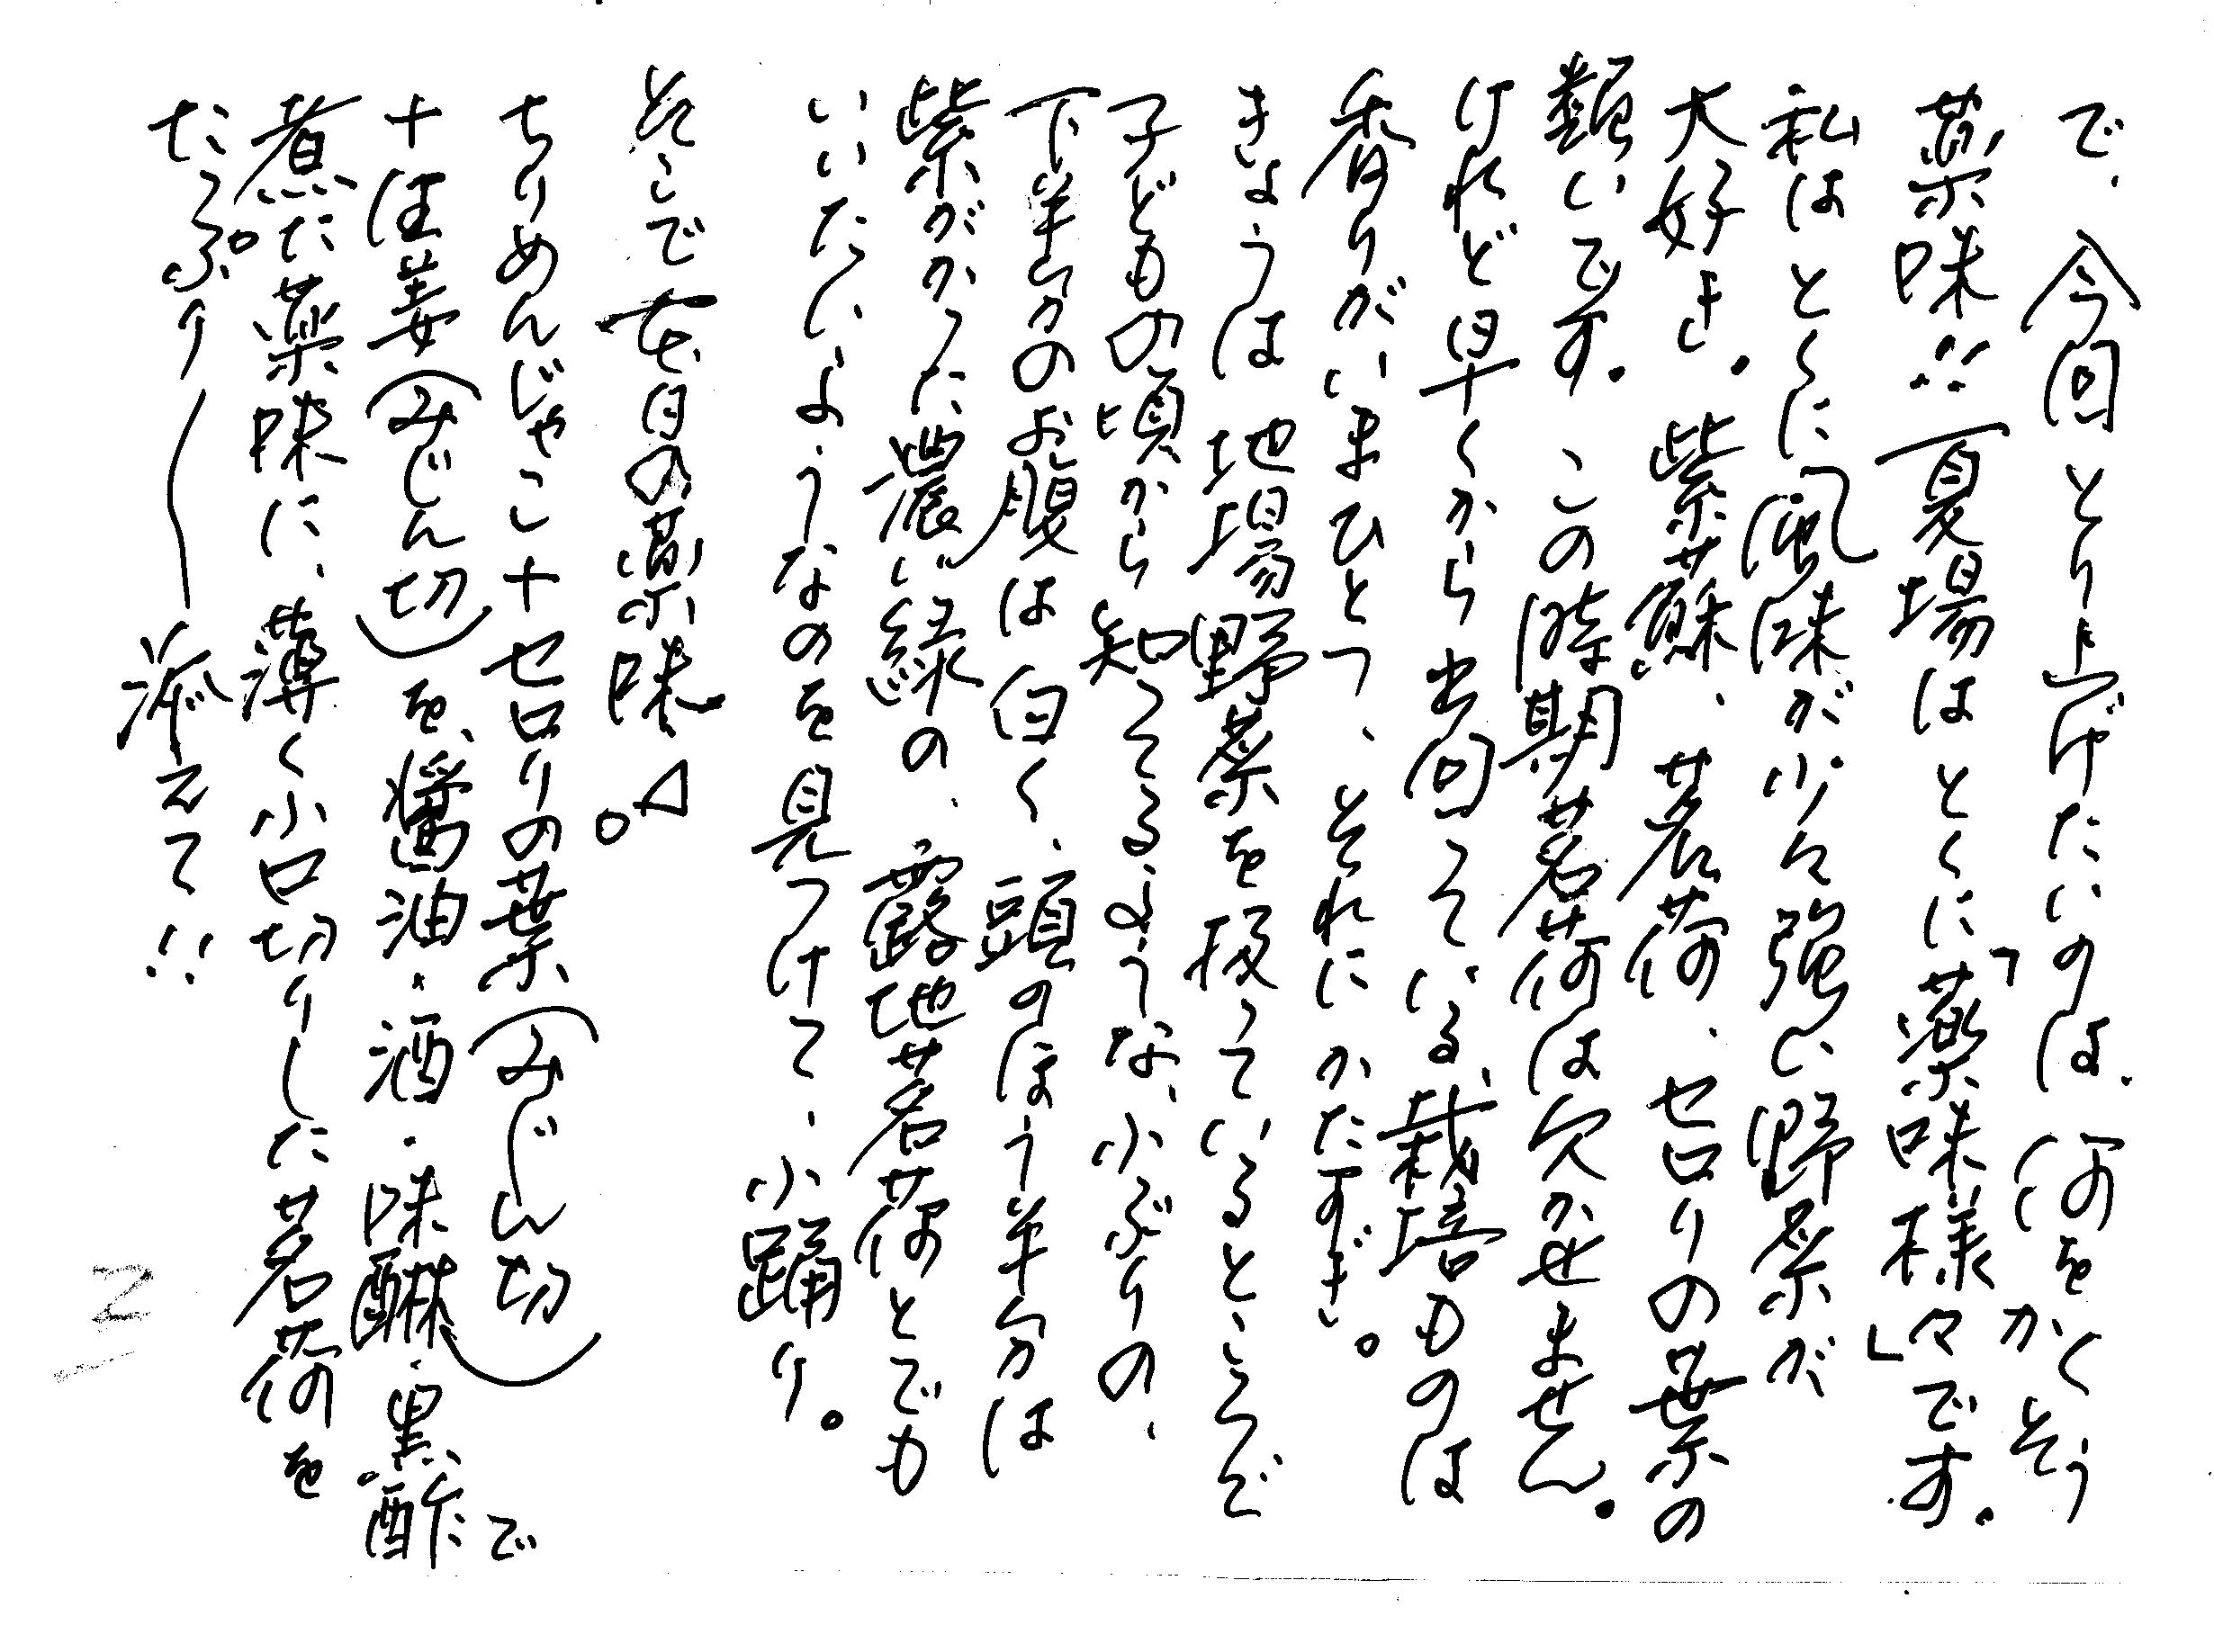 で、今回とり上げたいのは、何をかくそう
薬味!!夏場はとくに「薬味様々」です。
私はとくに風味が少々強い野菜が
大好き。紫蘇、茗荷、セロリの葉の
類いです。この時期茗荷は欠かせません。
けれど早くから出回っている、栽培ものは
香りがいまひとつ、それにかたすぎ。
きょうは地場野菜を扱っているところで
子どもの頃から知ってるような、小ぶりの、
下半分のお腹は白く、頭のほう半分は
紫がかった濃い緑の、露地茗荷とでも
いいたいようなのを見つけて、小踊り。
そこで本日の薬味。
ちりめんじゃこ+セロリの葉(みじん切)
+生姜(みじん切)を、醤油・酒・味醂・黒酢で
煮た薬味に、薄く小口切りした茗荷を
たっぷり――添えて!!